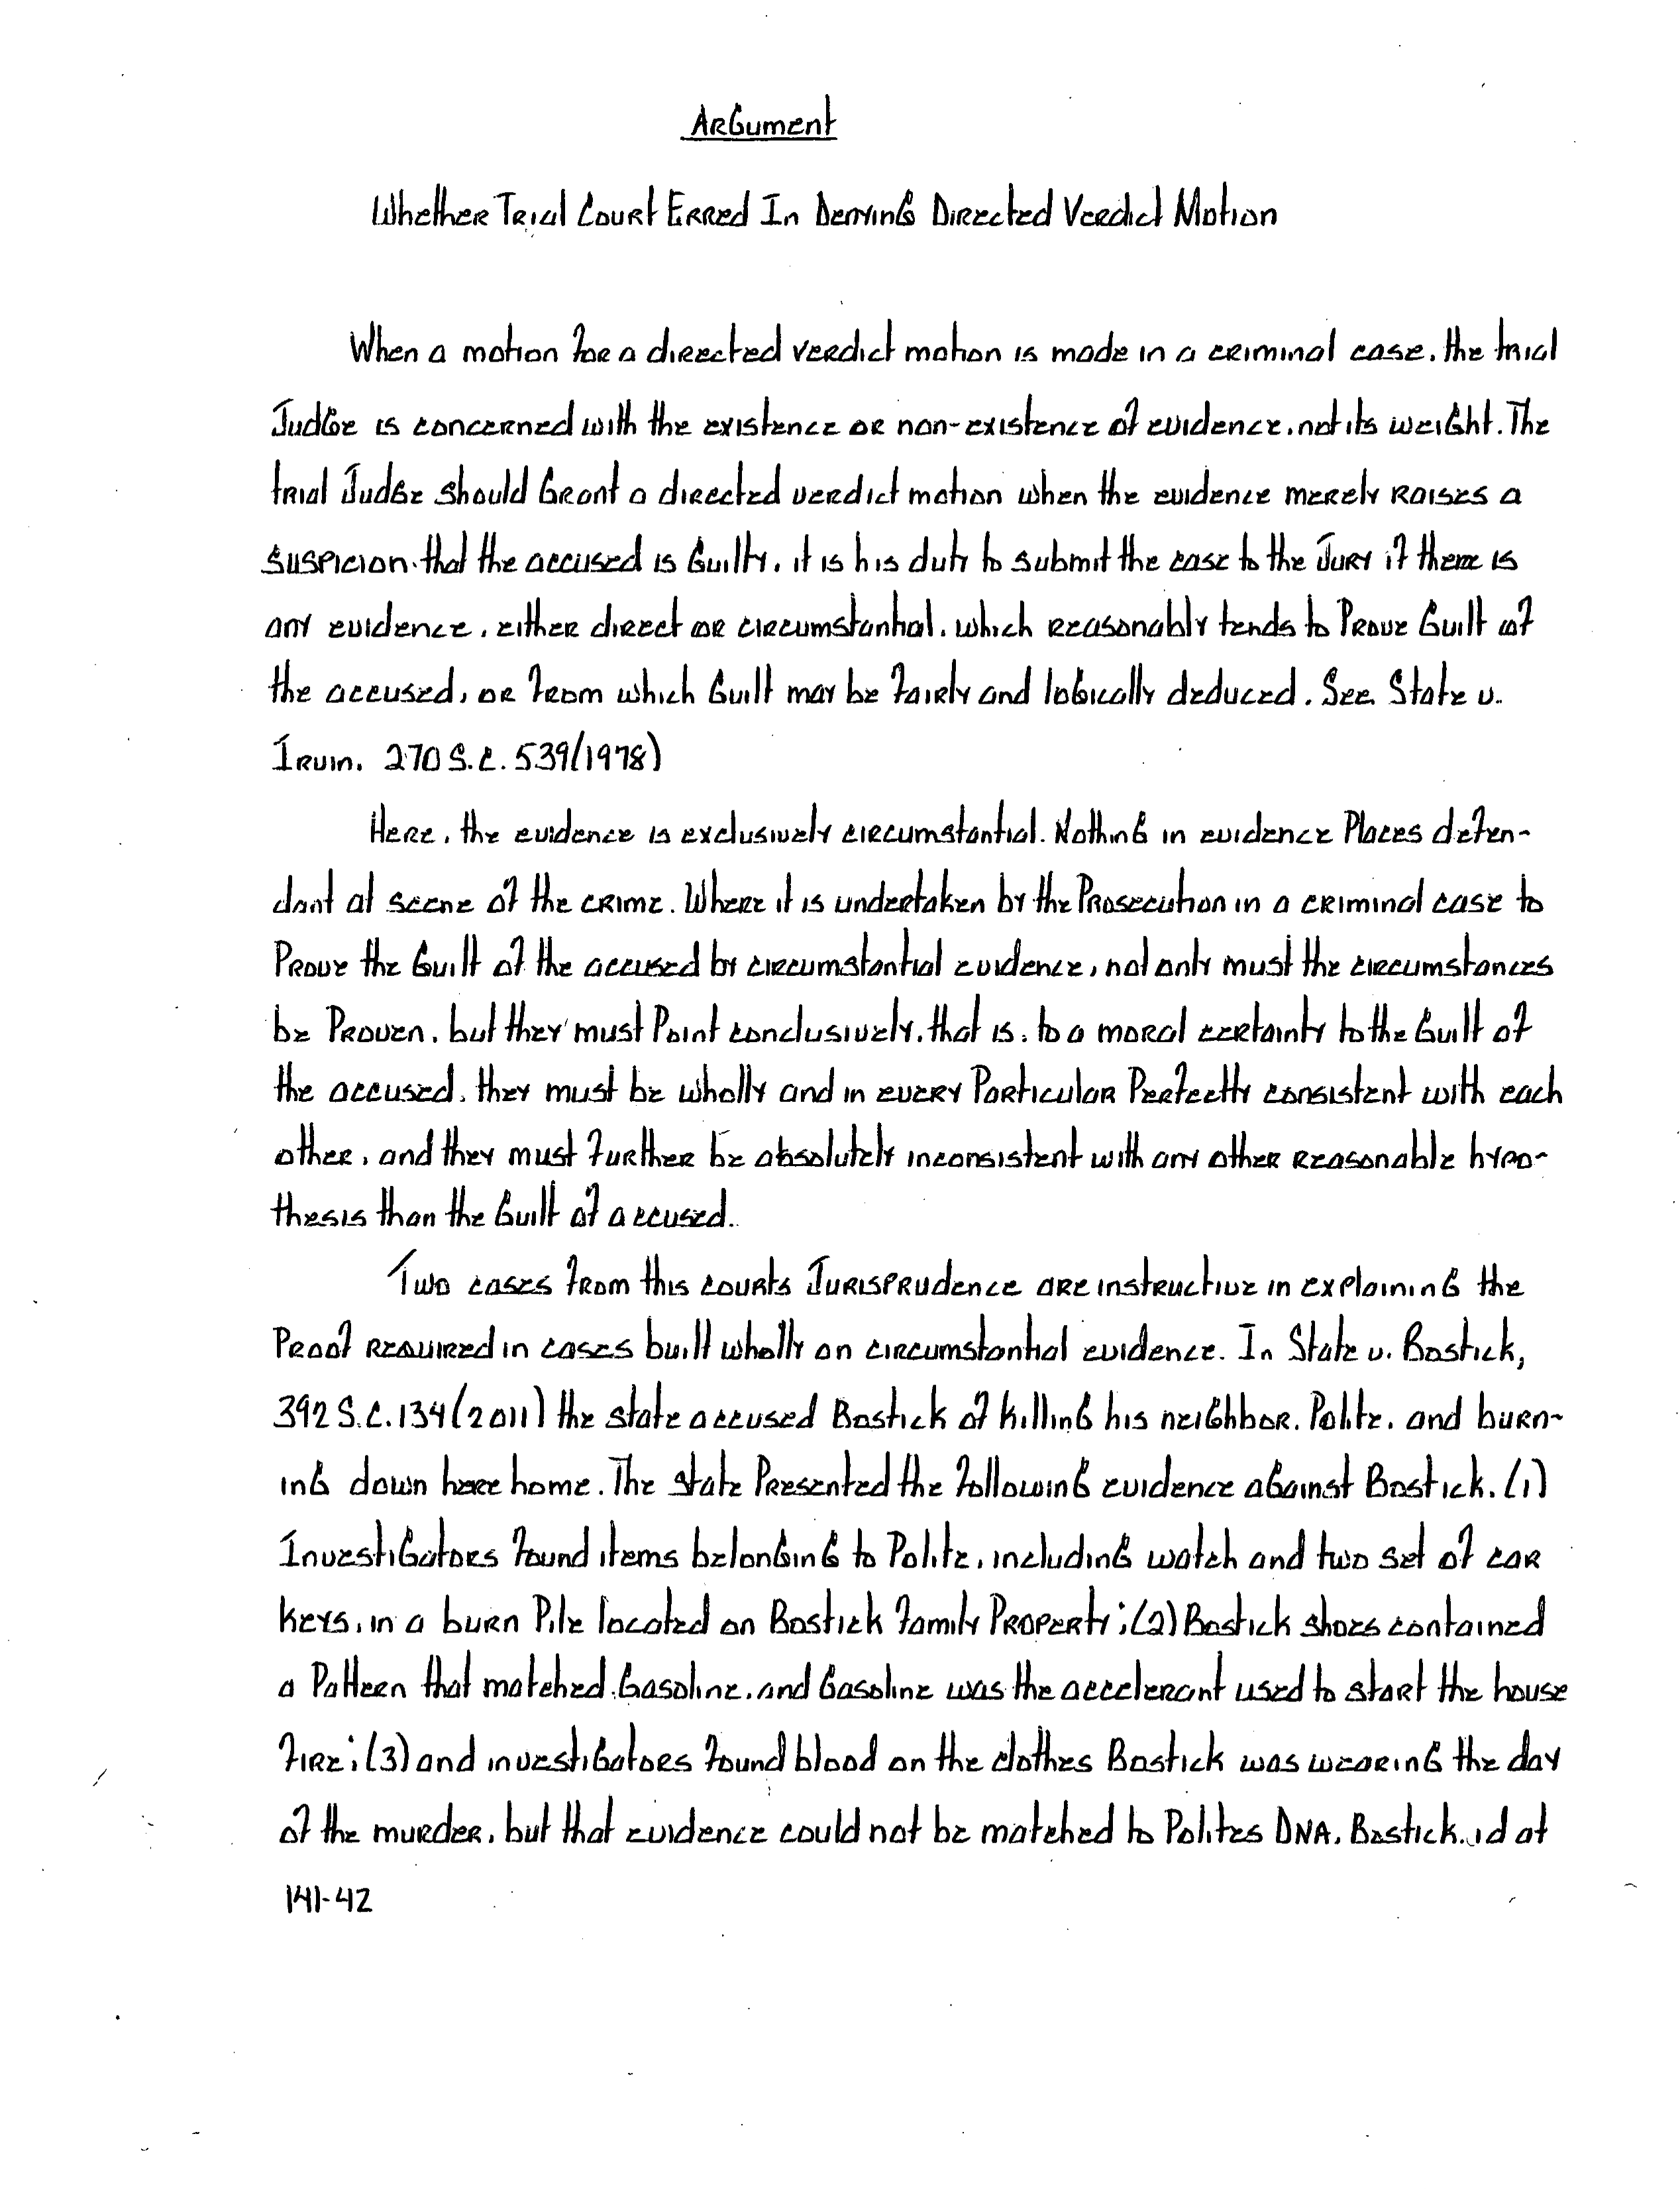 Argument
Whether Trial Court Erred In Denying Directed Verdict Motion
When a motion for a directed verdict motion is made in a criminal case, the trial
Judge is concerned with the existence or non-existence of evidence, not its weight. The
trial Judge should Grant a directed verdict motion when the evidence merely raises a
suspicion that the accused is Guilty, it is his duty to submit the case to the Jury if there is
any evidence, either direct or circumstantial, which reasonably tends to Prove Guilt of
the accused, or from which Guilt may be fairly and logically deduced. See State v.
Irvin, 270 S.C. 539 (1978)
Here, the evidence is exclusively circumstantial. Nothing in evidence Places defen-
dant at scene of the crime. Where it is undertaken by the Prosecution in a criminal case to
Prove the Guilt of the accused by circumstantial evidence, not only must the circumstances
be Proven, but they must Point conclusively, that is, to a moral certainty to the Guilt of
the accused, they must be wholly and in every Particular Perfectly consistent with each
other, and they must further be absolutely inconsistent with any other reasonable hypo-
thesis than the Guilt of accused.
Two cases from this courts Jurisprudence are instructive in explaining the
Proof required in cases built wholly on circumstantial evidence. In State v. Bostick,
392 S.C. 134 (2011) the state accused Bostick of killing his neighbor, Polite, and burn-
ing down here home. The state Presented the following evidence against Bostick. (1)
Investigators found items belonging to Polite, including watch and two set of car
keys, in a burn Pile located on Bostick family Property; (2) Bostick shoes contained
a Pattern that matched Gasoline, and Gasoline was the accelerant used to start the house
fire; (3) and investigators found blood on the clothes Bostick was wearing the day
of the murder, but that evidence could not be matched to Polites DNA. Bostick, id at
141-42